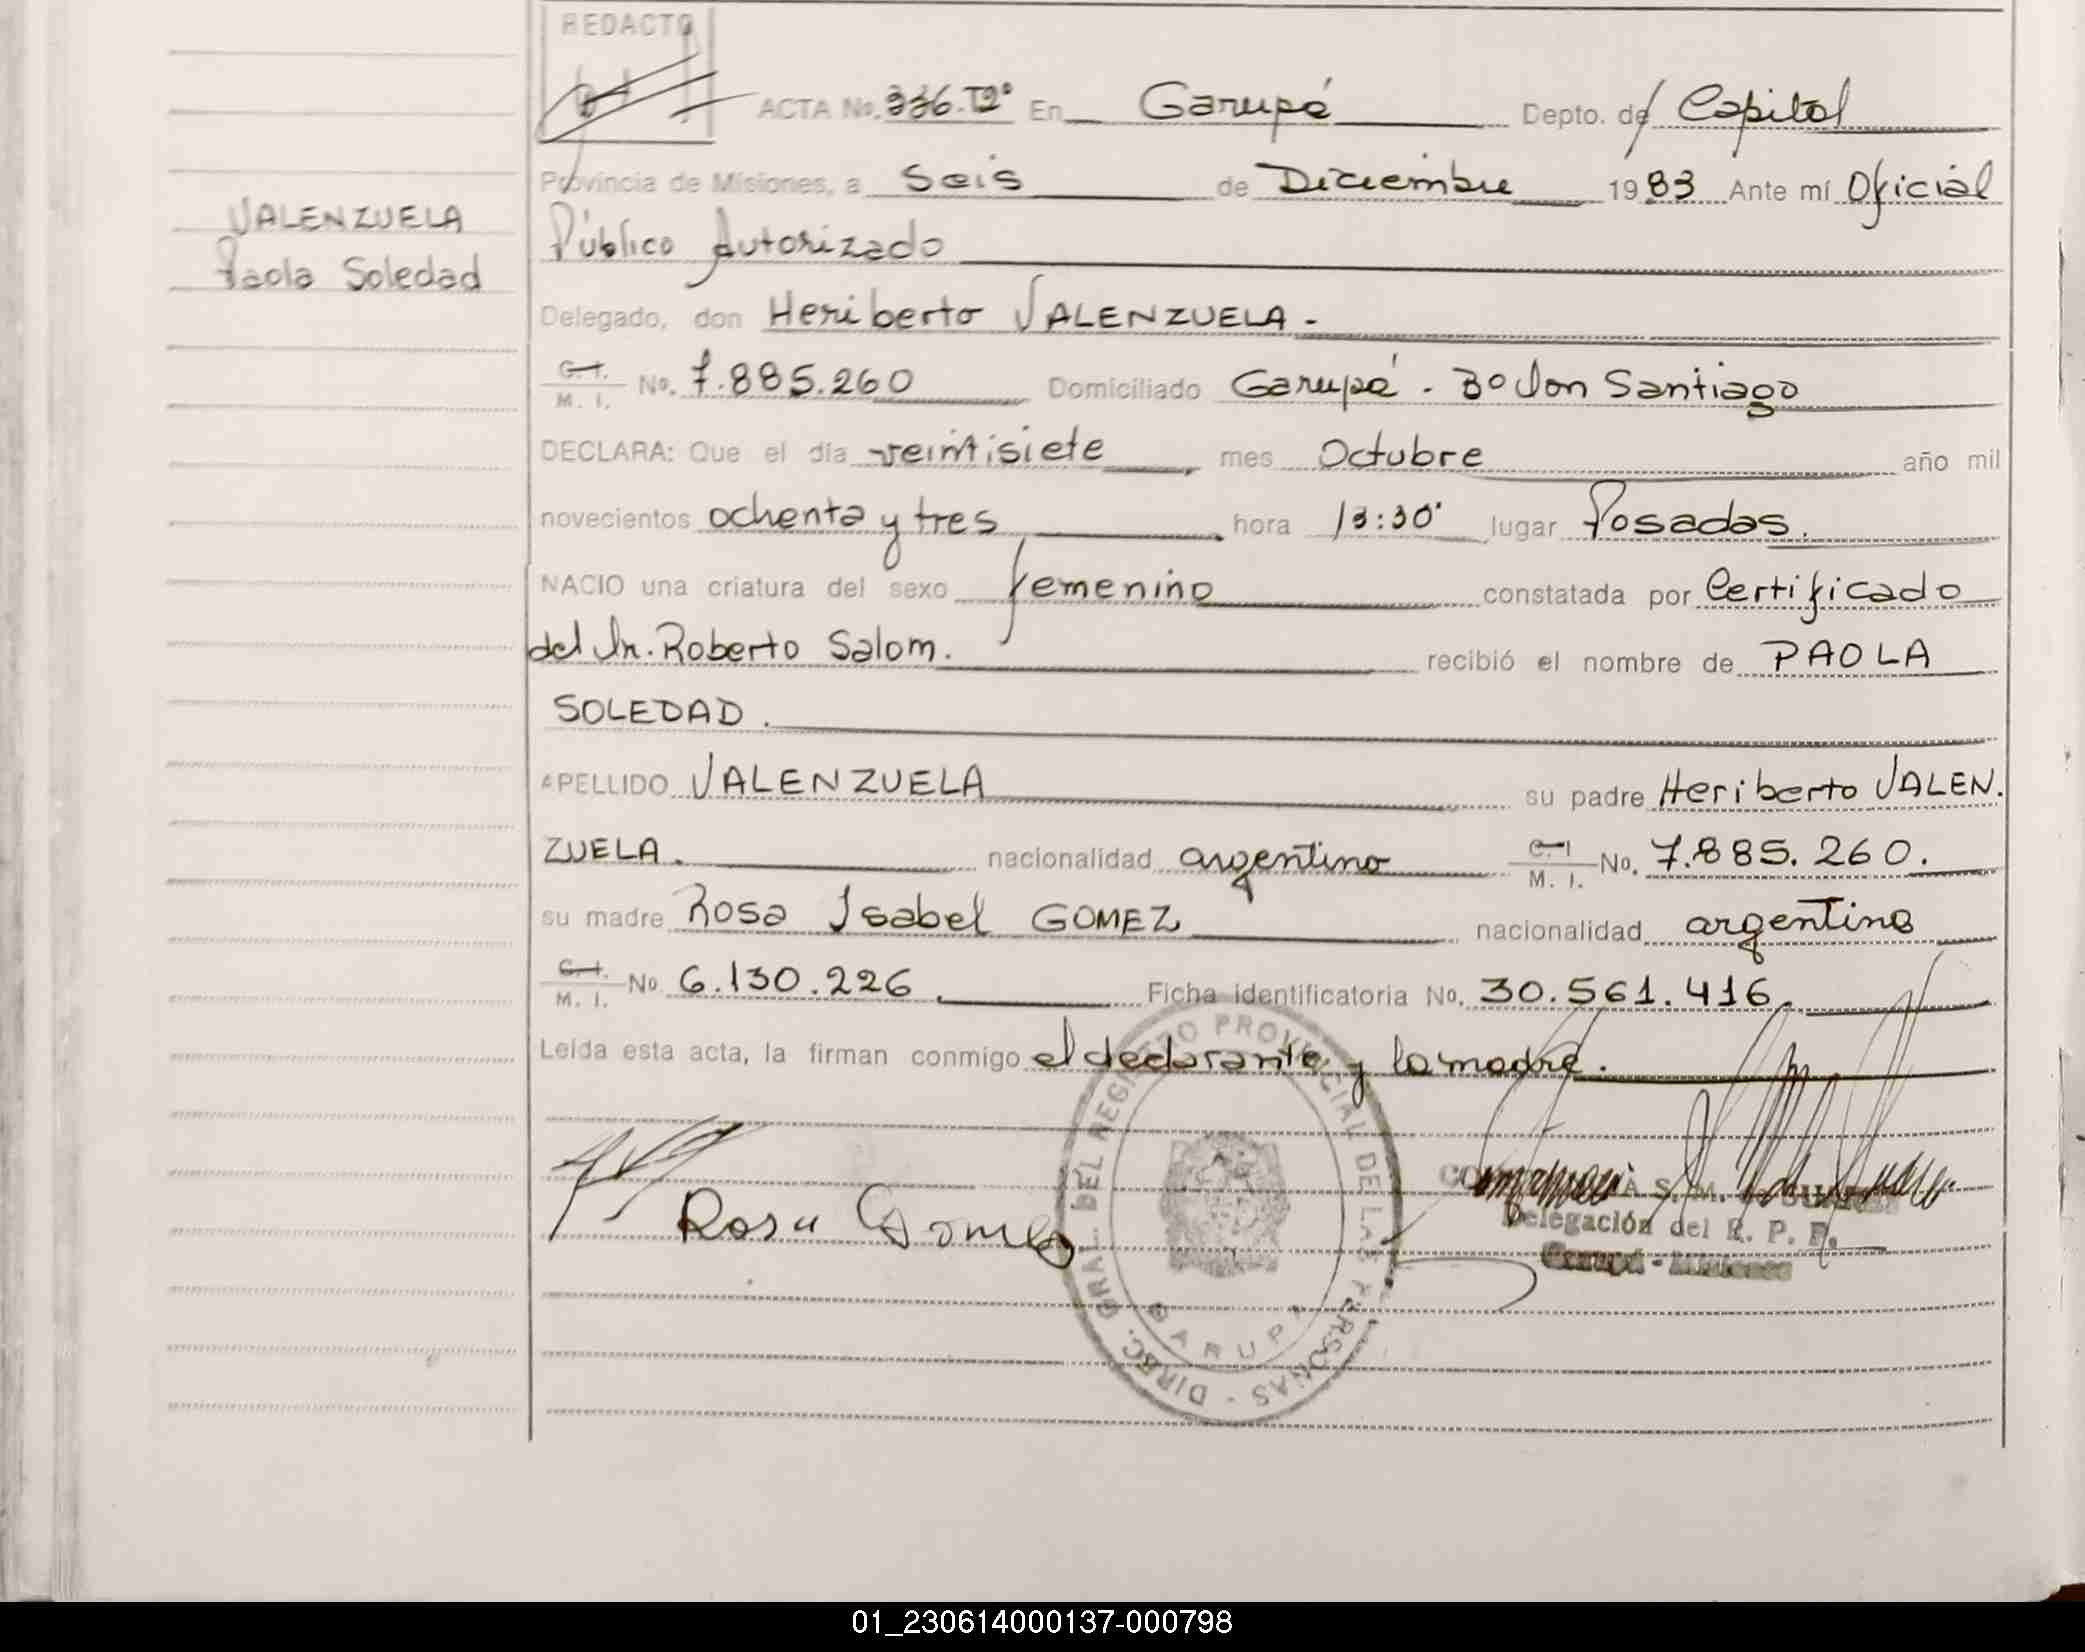 REDACTO
ACTA No. 336.Tº2º En Garupá Depto. de Capital
Provincia de Misiones, a Seis de Diciembre 1983 Ante mí Oficial
Público Autorizado
VALENZUELA
Paola Soledad
Delegado, don Heriberto VALENZUELA.-
C. I. M. I. No. 7.885.260 Domiciliado Garupá - Bº Don Santiago
DECLARA: Que el día veintisiete, mes Octubre año mil
novecientos ochenta y tres hora 13:30' lugar Posadas.
NACIO una criatura del sexo femenino constatada por Certificado
del Dr. Roberto Salom. recibió el nombre de PAOLA
SOLEDAD.
APELLIDO VALENZUELA su padre Heriberto VALEN.
ZUELA. nacionalidad argentino C. I. M. I. No. 7.885.260.
su madre Rosa Isabel GOMEZ nacionalidad argentina
C. I. M. I. No 6.130.226. Ficha identificatoria No. 30.561.416.
Leída esta acta, la firman conmigo el declarante y la madre.
Rosa Gomez
DIREC. GRAL. DEL REGISTRO PROVINCIAL DE LAS PERSONAS -
GARUPA
S. M.
Delegación del R. P. P.
Garupá - Misiones
01_230614000137-000798